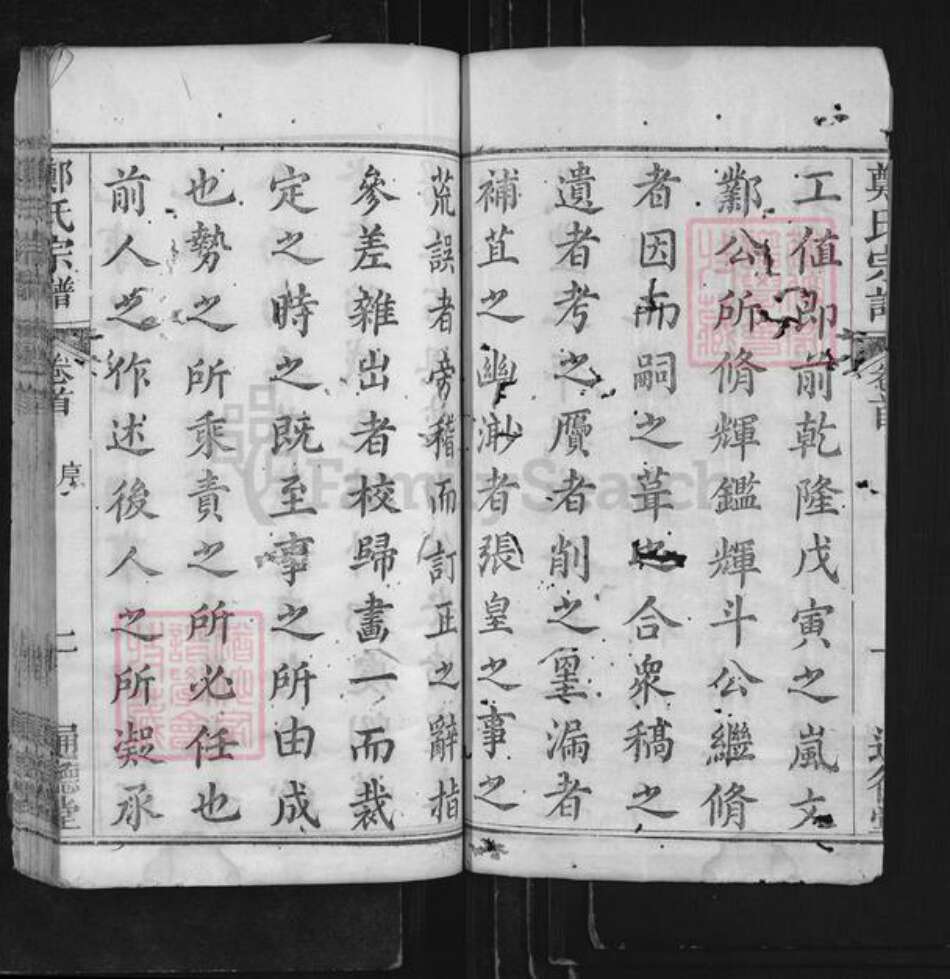 工值即前乾隆戊寅之嵐文
鄭公所脩輝鑑輝斗公繼脩
者因而嗣之葺之合衆稿之
遺者考之贗者削之罣漏者
補苴之幽渺者張皇之事之
荒誤者旁稽而訂正之辭指
參差雜出者校歸畫一而裁
定之時之既至事之所由成
也勢之所乘責之所必任也
前人之作述後人之所凝承
鄭氏宗譜
卷首
序
二
鄭氏宗譜
卷首
一
FamilySearch